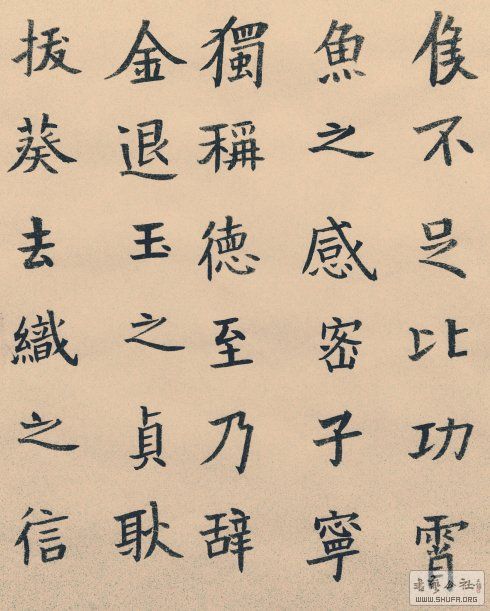 不足比功霄
魚之感密子寧
獨稱德至乃辞
金退玉之貞耿
拔葵去織之信
WWW.SHUFA.ORG